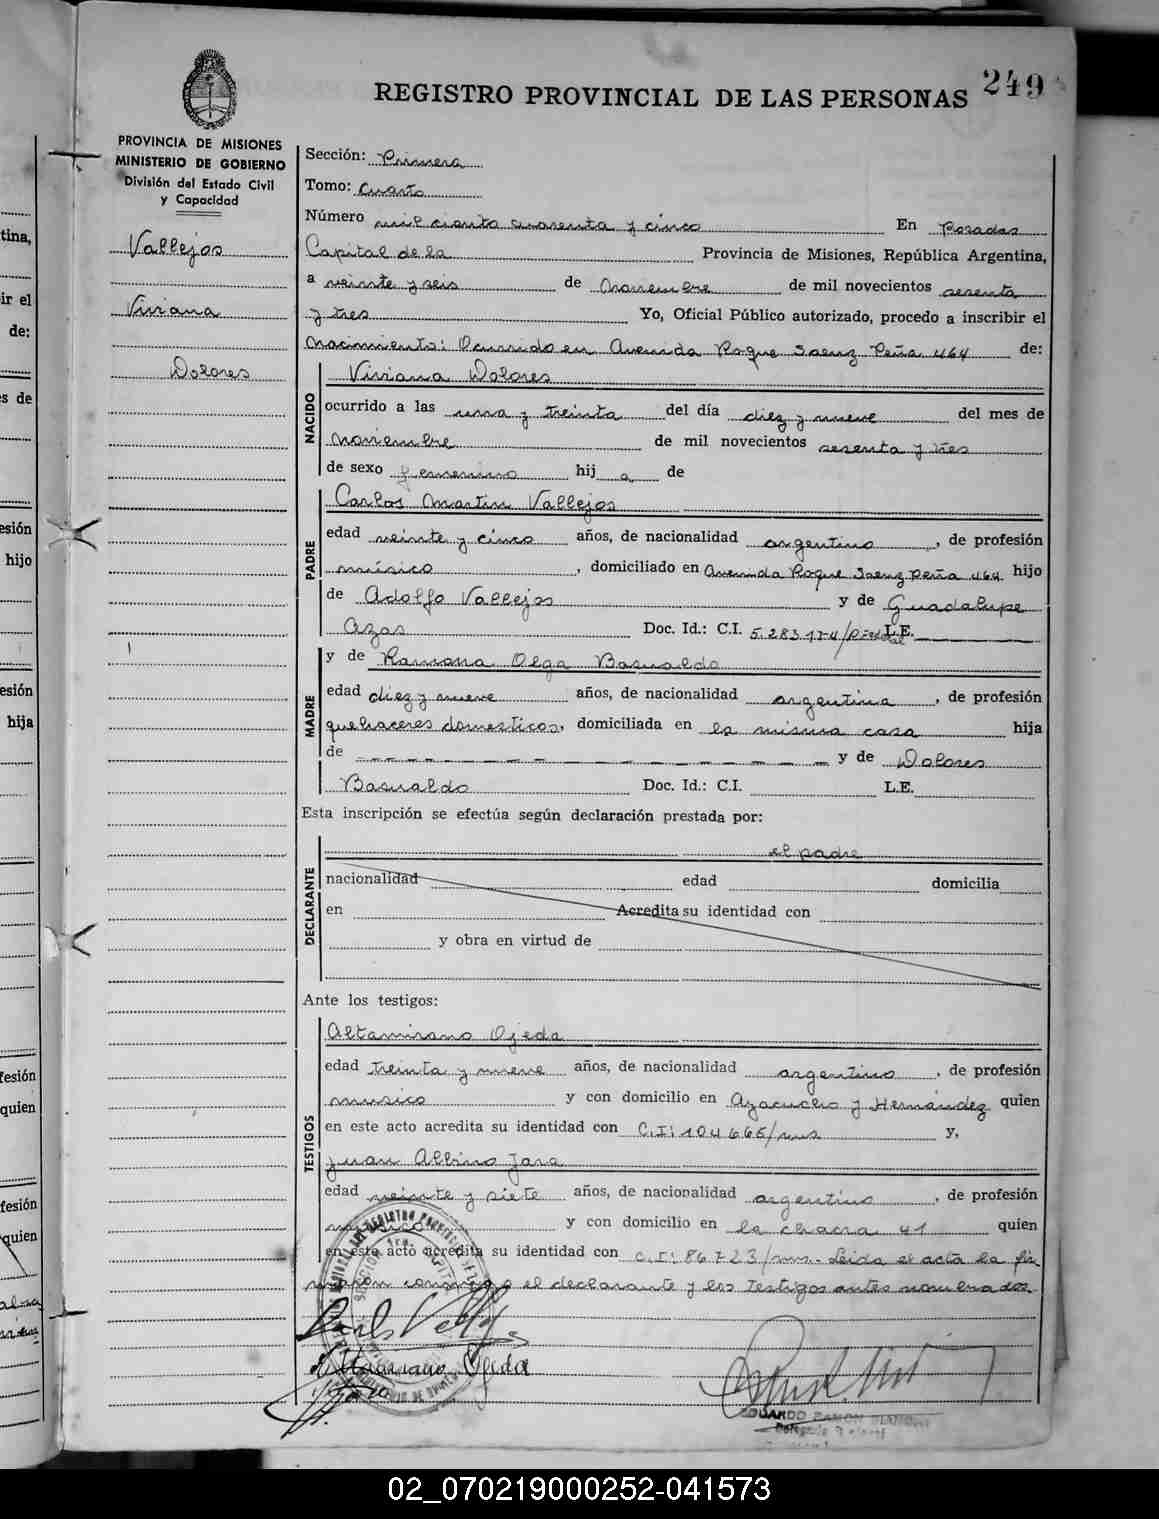 249
REGISTRO PROVINCIAL DE LAS PERSONAS
PROVINCIA DE MISIONES
MINISTERIO DE GOBIERNO
División del Estado Civil
y Capacidad
Vallejos
Viviana
Dolores
Sección: Primera
Tomo: Cuarto
Número mil ciento cuarenta y cinco En Posadas
Capital de la Provincia de Misiones, República Argentina,
a veinte y seis de Noviembre de mil novecientos sesenta
y tres Yo, Oficial Público autorizado, procedo a inscribir el
Nacimiento: Ocurrido en Avenida Roque Saenz Peña 464 de:
NACIDO
Viviana Dolores
ocurrido a las una y treinta del día diez y nueve del mes de
Noviembre de mil novecientos sesenta y tres
de sexo femenino hij a de
PADRE
Carlos Martin Vallejos
edad veinte y cinco años, de nacionalidad argentino, de profesión
músico, domiciliado en Avenida Roque Saenz Peña 464 hijo
de Adolfo Vallejos y de Guadalupe
Azas Doc. Id.: C.I. L.E.
MADRE
y de Ramona Olga Basualdo
edad diez y nueve años, de nacionalidad argentina, de profesión
quehaceres domesticos, domiciliada en la misma casa hija
de y de Dolores
Basualdo Doc. Id.: C.I. L.E.
Esta inscripción se efectúa según declaración prestada por:
DECLARANTE
el padre
nacionalidad edad domicilia
en Acredita su identidad con
y obra en virtud de
Ante los testigos:
TESTIGOS
Altamirano Ojeda
edad treinta y nueve años, de nacionalidad argentino, de profesión
musico y con domicilio en Ayacucho y Hernández quien
en este acto acredita su identidad con C.I: 104665/mns y,
Juan Albino Jara
edad veinte y siete años, de nacionalidad argentino, de profesión
musico y con domicilio en la chacra 41 quien
en este acto acredita su identidad con C.I: 86723/mns. Leida el acta la fir
maron conmigo el declarante y los testigos antes nombrados.
Altamirano Ojeda
EDUARDO RAMON
tina,
ir el
de:
s de
esión
hijo
esión
hija
fesión
quien
fesión
quien
02_070219000252-041573